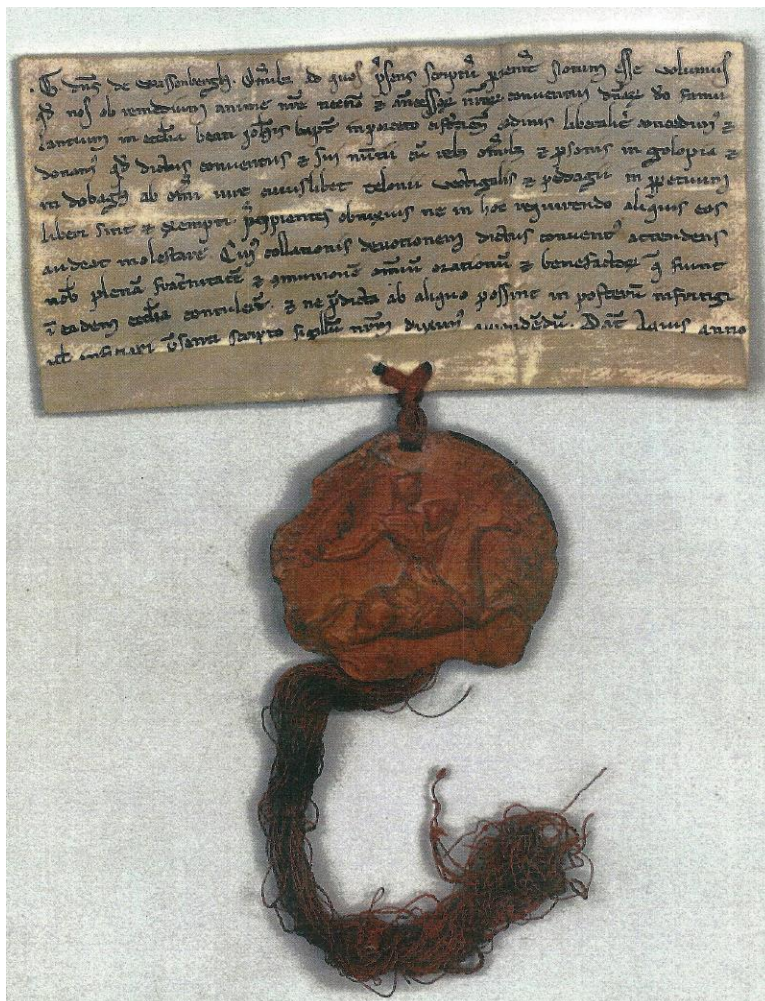 G. dns de Wassenbergh. Omibz ad quos psens scriptu puenit Notum esse volumus
qd nos ob remedium anime nre necno & ancessor nror conventui dnar do famu
lantium in ecclia beati johis bapt in porceto cisterc ordinis liberalit concedim &
donam qd dictus conventus & sui nuntii cu rebz omibz & psonis in golopia &
in dobagh ab omi iure cuiuslibet telonii vectigalis & pedagii in ppetuum
liberi sint & exempti. pcipientes obnixius ne in hoc requirendo aliquis eos
audeat molestare. Cui collationis devotionem dictus convent attendens
nob plenam fraternitate & omunione omiu orationu & benefactor q fiunt
i eadem ecclia contuler. & ne pdicta ab aliquo possint in posteru infringi
ul scripto sigillu nrm duxim apendedu. Dat Aquis anno